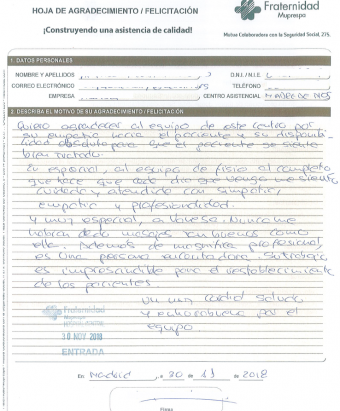 HOJA DE AGRADECIMIENTO / FELICITACIÓN
Fraternidad
Muprespa
¡Construyendo una asistencia de calidad!
Mutua Colaboradora con la Seguridad Social, 275.
1. DATOS PERSONALES
NOMBRE Y APELLIDOS
D.N.I. / N.I.E.
CORREO ELECTRÓNICO
TELÉFONO
EMPRESA
CENTRO ASISTENCIAL
2. DESCRIBA EL MOTIVO DE SU AGRADECIMIENTO / FELICITACIÓN
Quiero agradecer al equipo de este centro por
su empatia hacia el paciente y su disponibi-
lidad absoluta para que el paciente se siente
bien tratado.
En especial, al equipo de fisio al completo
que hace que cada dia que vengo me siente
cuidado y atendido con simpatia,
empatia y profesionalidad.
Y muy especial, a Vanesa. Nunca me
habian dado masajes tan buenos como
ella. Además de magnífica profesional,
es una persona encantadora. Su trabajo
es imprescindible para el restablecimiento
de los pacientes.
Un muy cordial saludo
y enhorabuena por el
equipo.
Fraternidad
Muprespa
30 NOV 2018
ENTRADA
En Madrid, a 30 de 11 de 2018
Firma